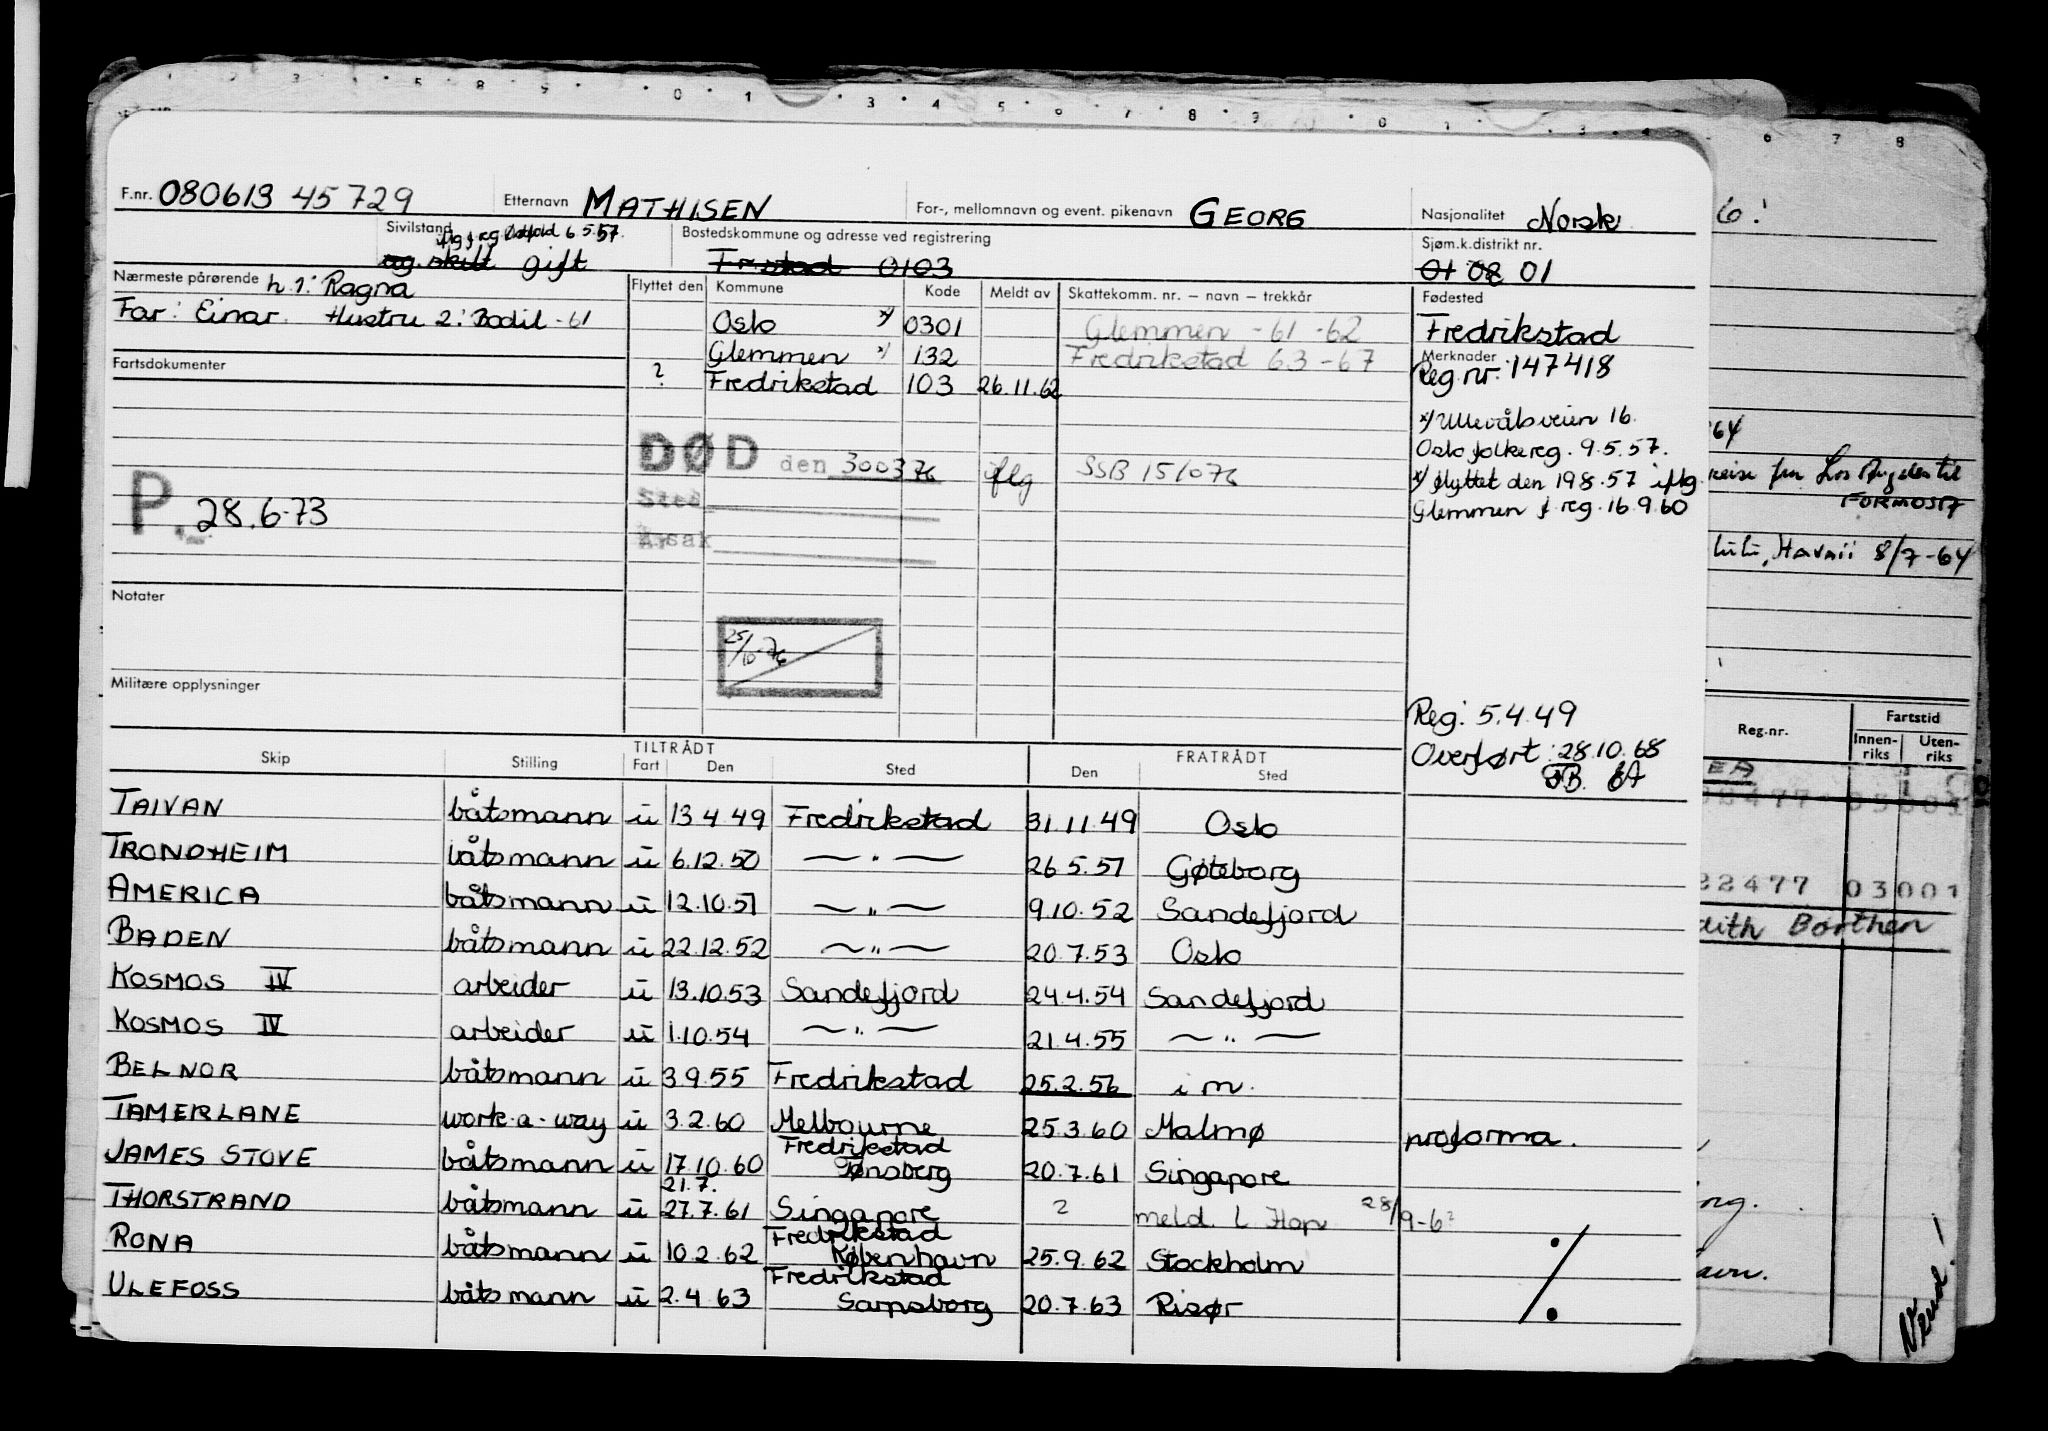 F.nr. 080613 45729 Etternavn MATHISEN For-, mellomnavn og event. pikenavn GEORG Nasjonalitet Norsk
Sivilstand 6 5.57. gift
Bostedskommune og adresse ved registrering Fr.stad 0103
Sjøm.k.distrikt nr. 01 08 01
Nærmeste pårørende h. 1: Ragna
Far: Einar. Hustru 2: Bodil -61
Flyttet den Kommune Kode Meldt av Skattekomm. nr. – navn – trekkår
Oslo x/ 0301 Glemmen -61 -62
Glemmen x/ 132 Fredrikstad 63-67
? Fredrikstad 103 26.11.62
Fødested
Fredrikstad
Merknader
Reg.nr: 147418
x/ Ullevålsveien 16.
Oslo folkereg. 9.5.57.
x/ flyttet den 198.57 iflg.
Glemmen f. reg. 16.9.60
Fartsdokumenter
P. 28.6-73
DØD den 300376 iflg SSB 151076
Sted
Årsak
25/10-76
Notater
Militære opplysninger
Reg: 5.4.49
Overført: 28.10.68
Skip Stilling TILTRÅDT Fart Den Sted FRATRÅDT Den Sted
TAIVAN båtsmann u 13 4 49 Fredrikstad 31.11.49 Oslo
TRONDHEIM båtsmann u 6.12.50 — " — 26 5.51 Gøteborg
AMERICA båtsmann u 12.10.51 — " — 9.10.52 Sandefjord
BADEN båtsmann u 22.12.52 — " — 20.7.53 Oslo
KOSMOS IV arbeider u 13.10.53 Sandefjord 24.4.54 Sandefjord
KOSMOS IV arbeider u 1.10.54 — " — 21.4.55 — " —
BELNOR båtsmann u 3.9.55 Fredrikstad 25.2.56 i m.
TAMERLANE work-a-way u 3.2.60 Melbourne 25.3.60 Malmø proforma.
JAMES STOVE båtsmann u 17.10.60 Fredrikstad Tønsberg 20.7.61 Singapore
THORSTRAND båtsmann u 21.7. 27.7.61 Singapore ? meld. 28/9-6
RONA båtsmann u 10.2.62 Fredrikstad København 25.9.62 Stockholm
ULEFOSS båtsmann u 2.4.63 Fredrikstad Sarpsborg 20.7.63 Risør
6!
64
Los Angeles til
FORMOSA
Havaii 8/7-64
Reg.nr. Fartstid
Innen-riks Uten-riks
22477 03001
Borthen
Vend!